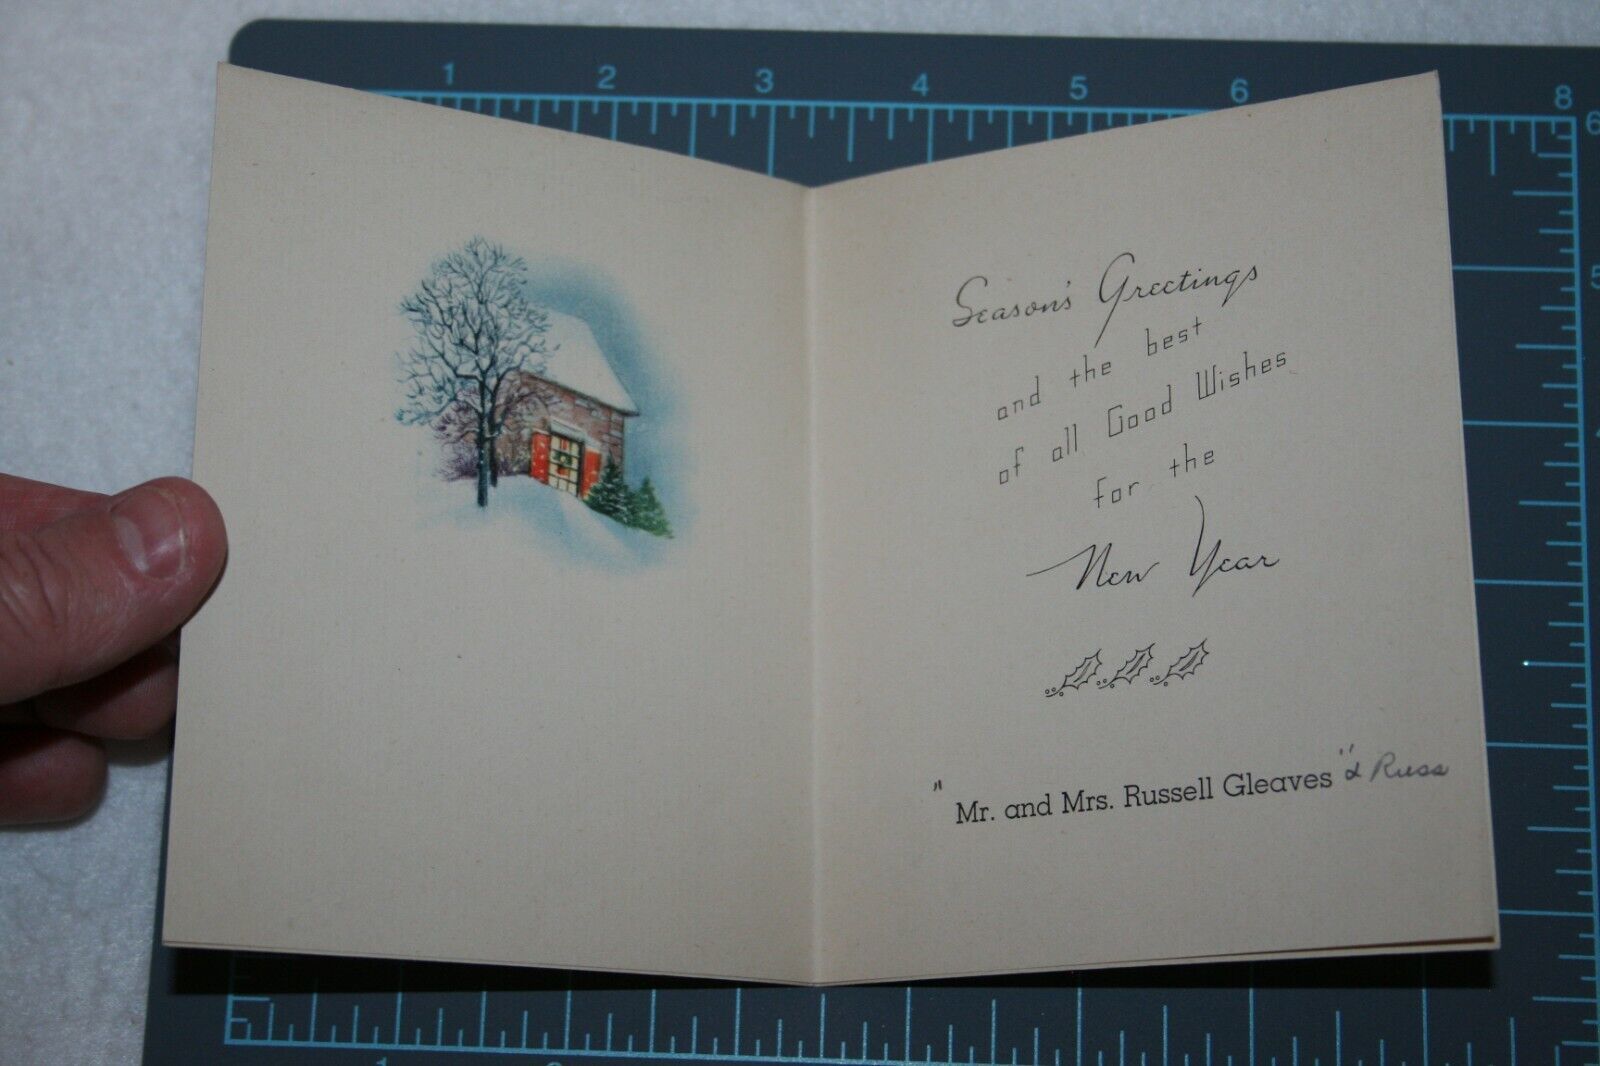 1 2 3 4 5 6 8
6
5
Season's Greetings
and the best
of all Good Wishes
for the
New Year
"Mr. and Mrs. Russell Gleaves" & Russ
1